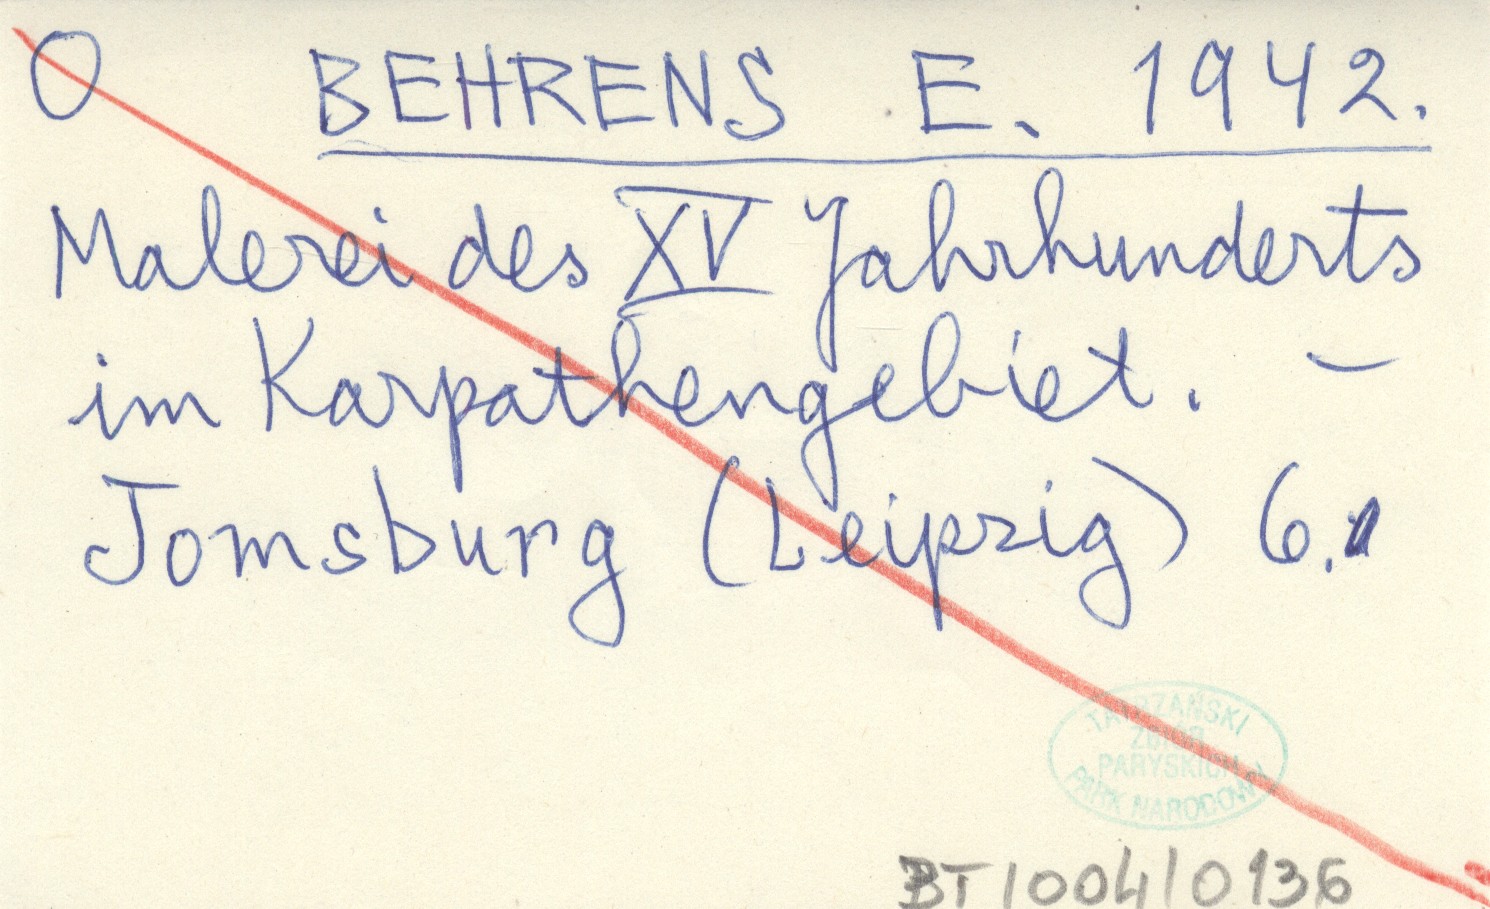 O BEHRENS E. 1942.
Malerei des XV Jahrhunderts
im Karpathengebiet. –
Jomsburg (Leipzig) 6.
TATRZAŃSKI
ZBIÓR
PARYSKICH
PARK NARODOWY
BT/004/0136